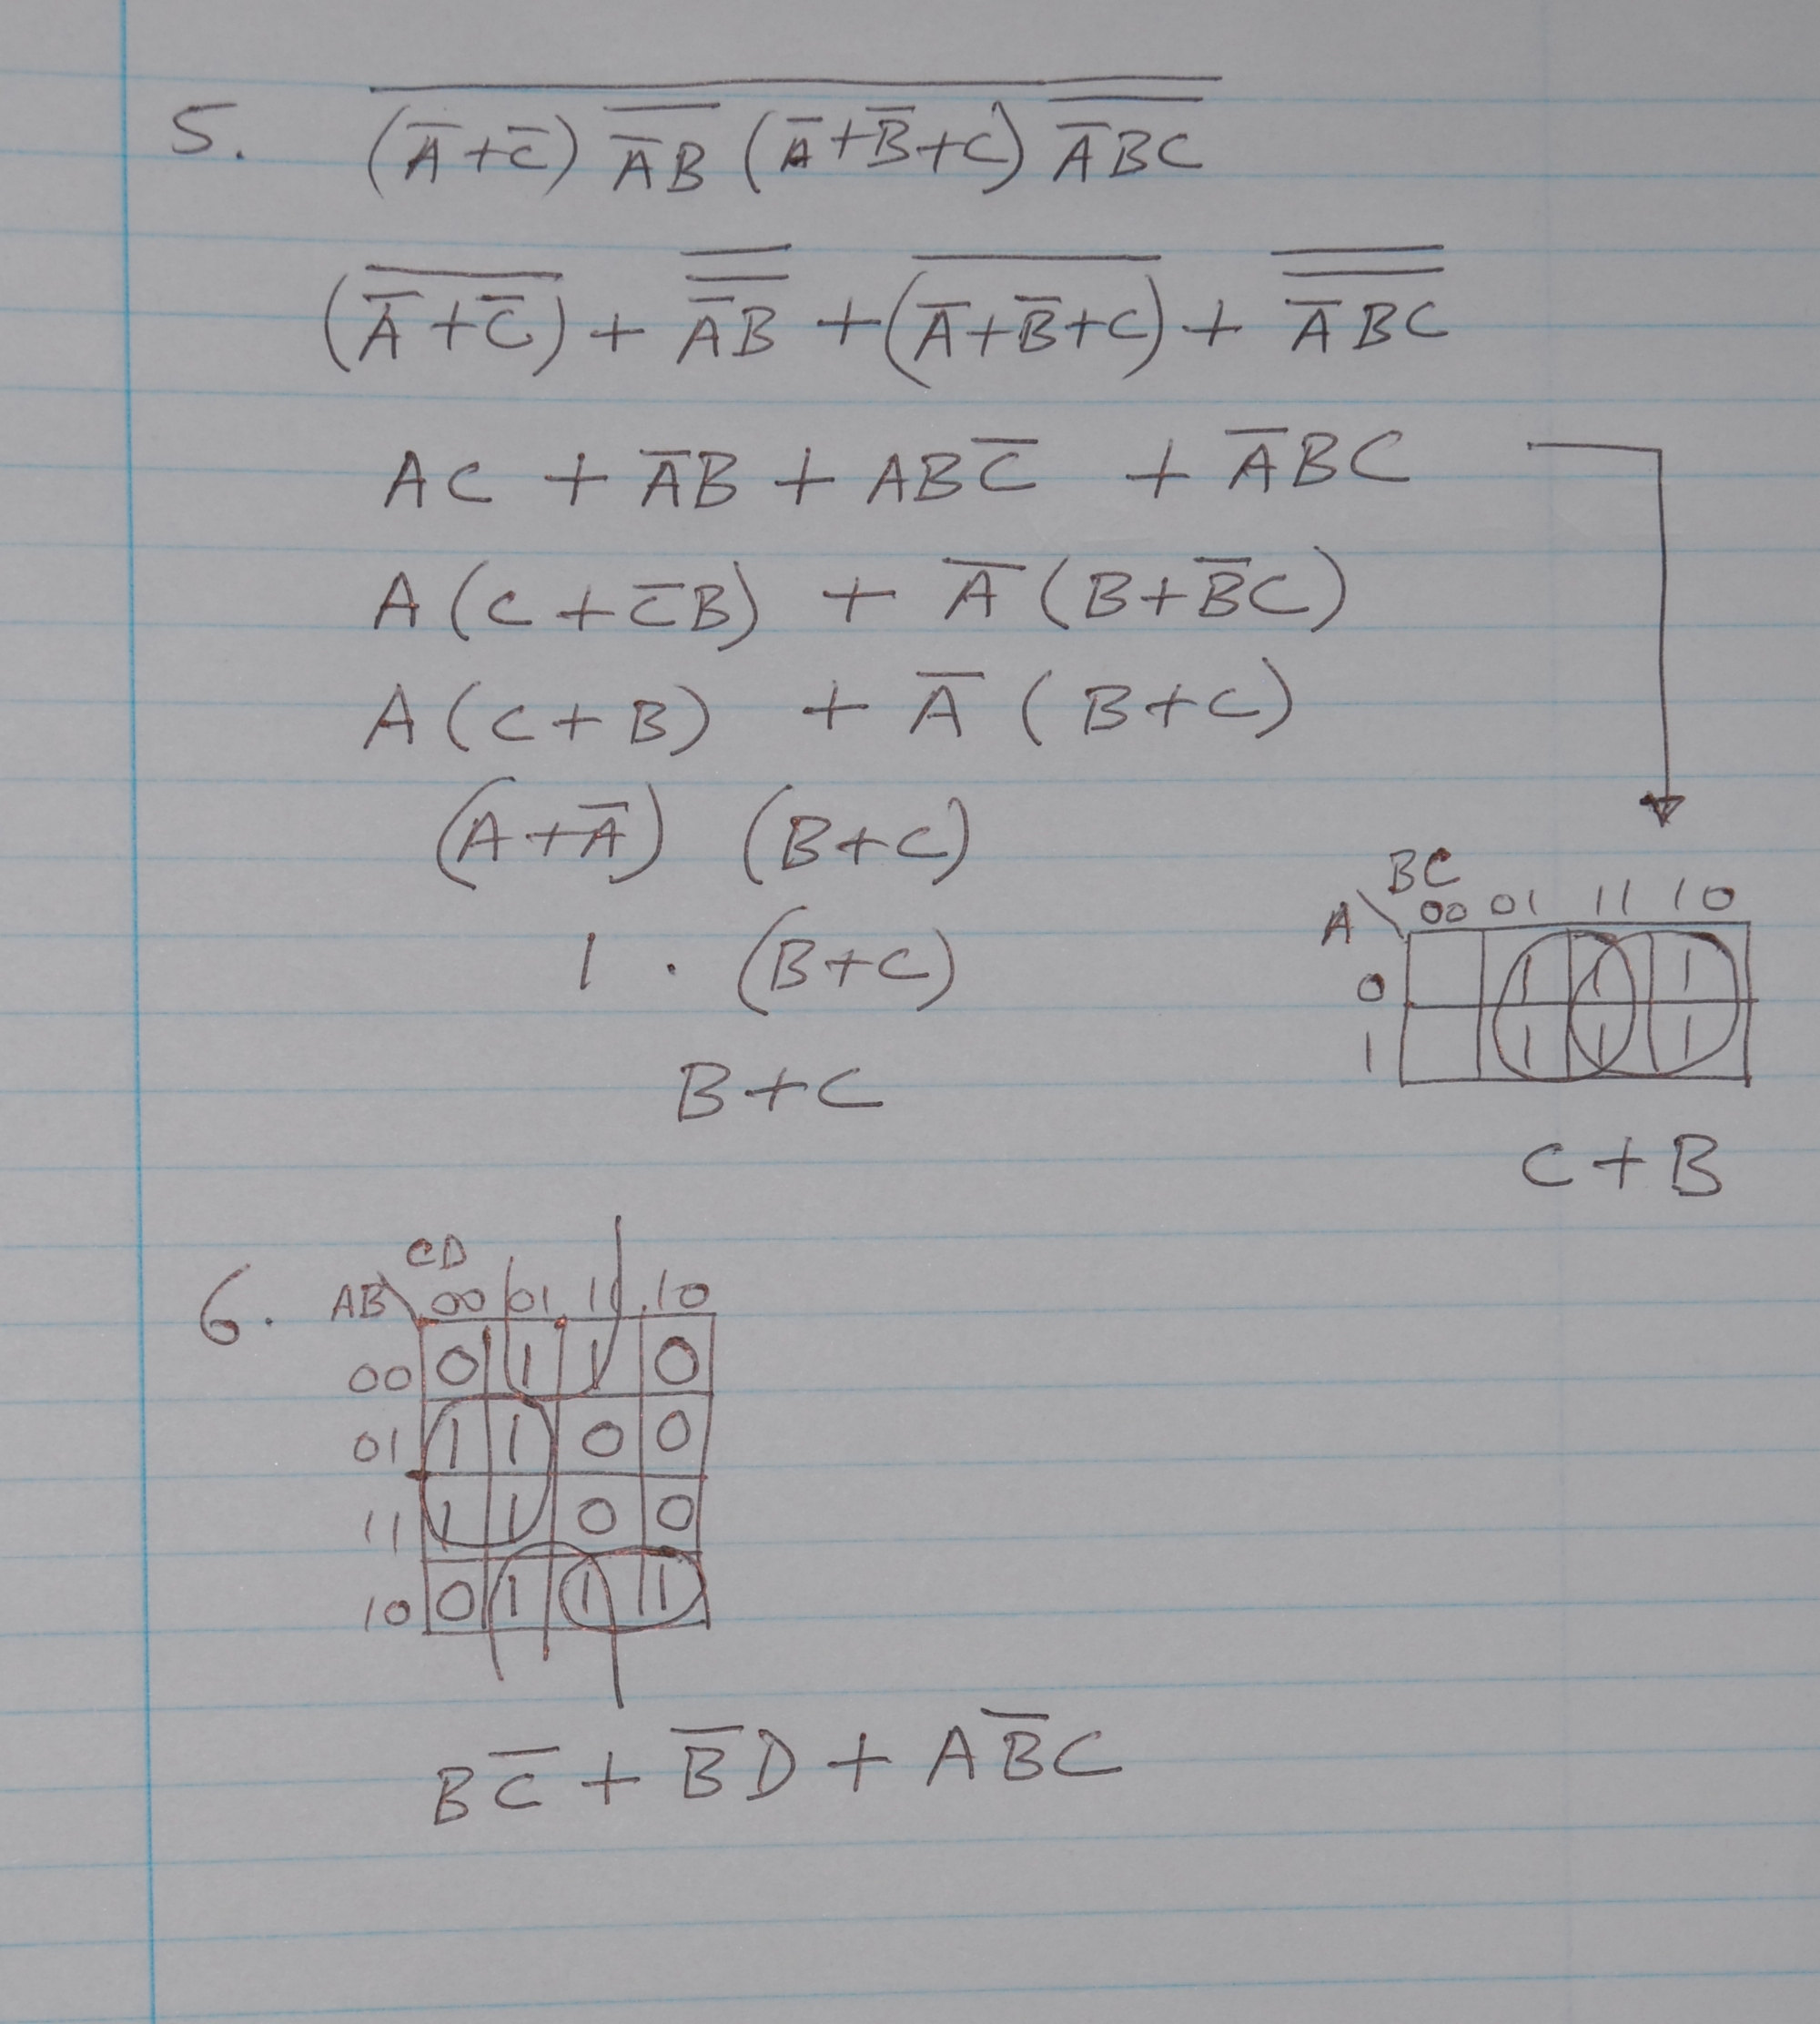 5. \overline{(\overline{A}+\overline{C}) \overline{\overline{A}B} (\overline{A}+\overline{B}+C) \overline{\overline{A}BC}}
(\overline{\overline{A}+\overline{C}}) + \overline{\overline{\overline{A}B}} + (\overline{\overline{A}+\overline{B}+C}) + \overline{\overline{\overline{A}BC}}
AC + \overline{A}B + AB\overline{C} + \overline{A}BC
A(C+\overline{C}B) + \overline{A}(B+\overline{B}C)
A(C+B) + \overline{A}(B+C)
(A+\overline{A}) (B+C)
1 · (B+C)
B+C
BC
A \ 00 01 11 10
0 1 1 1
1 1 1 1
C+B
6. CD
AB \ 00 01 11 10
00 0 1 1 0
01 1 1 0 0
11 1 1 0 0
10 0 1 1 1
B\overline{C} + \overline{B}D + A\overline{B}C